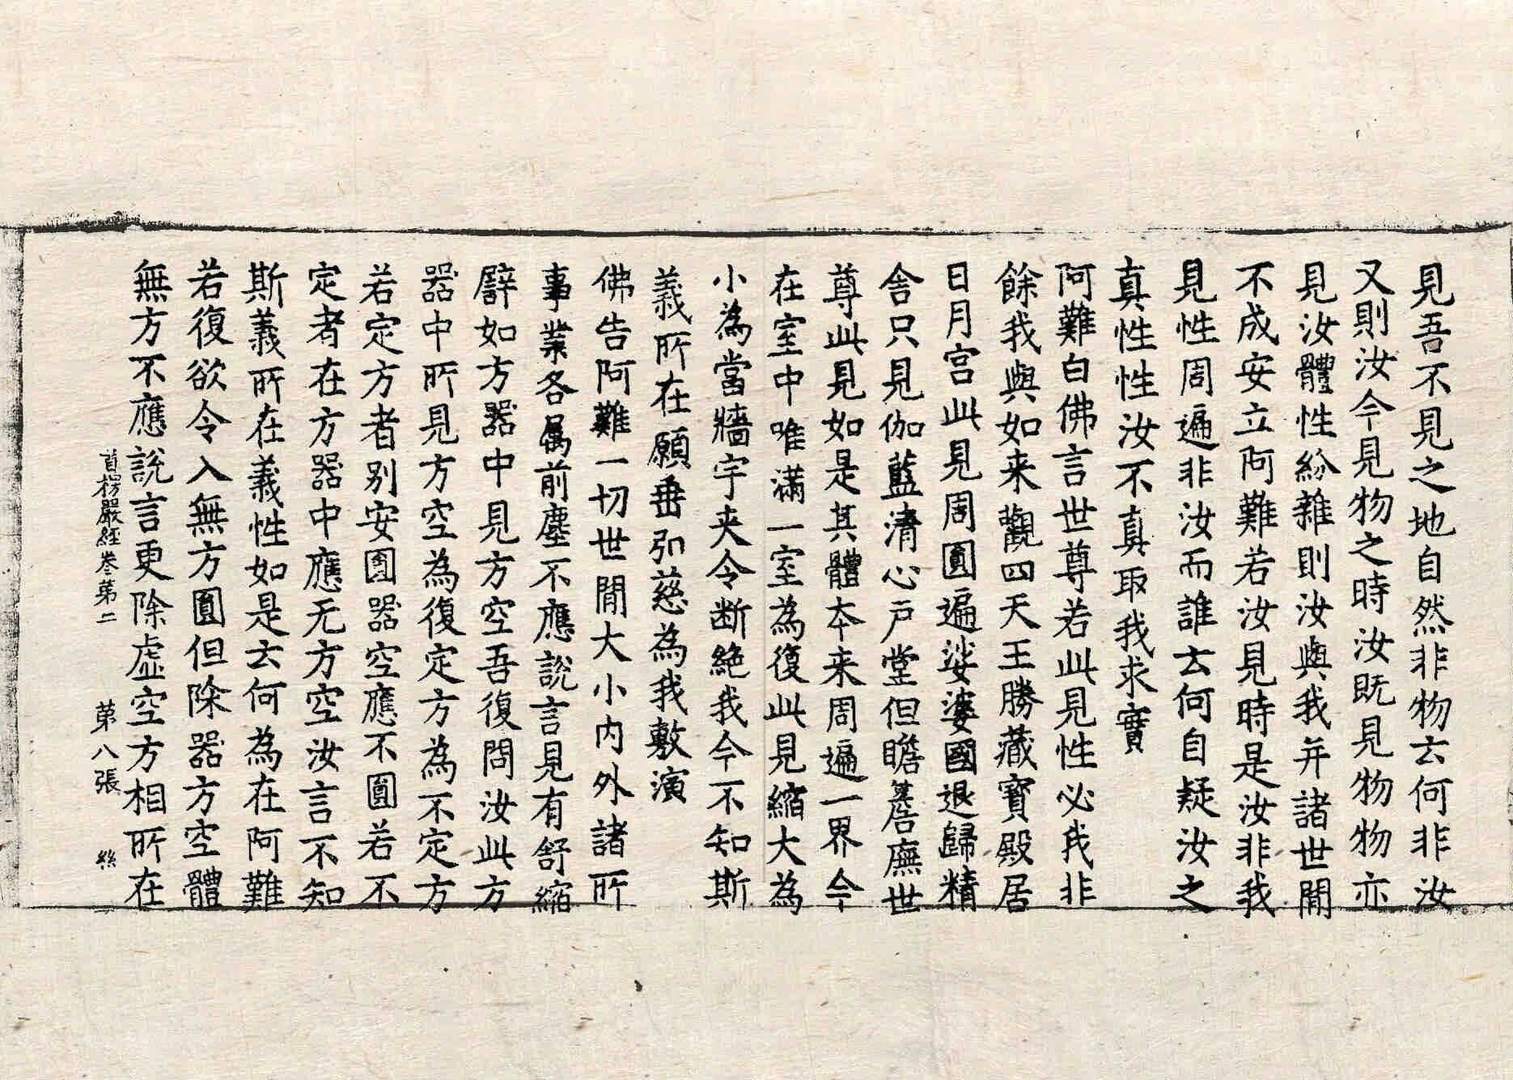 見吾不見之地自然非物云何非汝
又則汝今見物之時汝既見物物亦
見汝體性紛雜則汝與我并諸世閒
不成安立阿難若汝見時是汝非我
見性周遍非汝而誰云何自疑汝之
真性性汝不真取我求實
阿難白佛言世尊若此見性必我非
餘我與如来觀四天王勝藏寳殿居
日月宫此見周圎遍娑婆國退歸精
舎只見伽藍清心戸堂但瞻簷廡世
尊此見如是其體本来周遍一界今
在室中唯滿一室為復此見縮大為
小為當牆宇夹令断絶我今不知斯
義所在願垂弘慈為我敷演
佛告阿難一切世閒大小内外諸所
事業各属前塵不應説言見有舒縮
譬如方器中見方空吾復問汝此方
器中所見方空為復定方為不定方
若定方者别安圎器空應不圎若不
定者在方器中應无方空汝言不知
斯義所在義性如是云何為在阿難
若復欲令入無方圎但除器方空體
無方不應説言更除虚空方相所在
首楞嚴經巻第二 第八張 絲